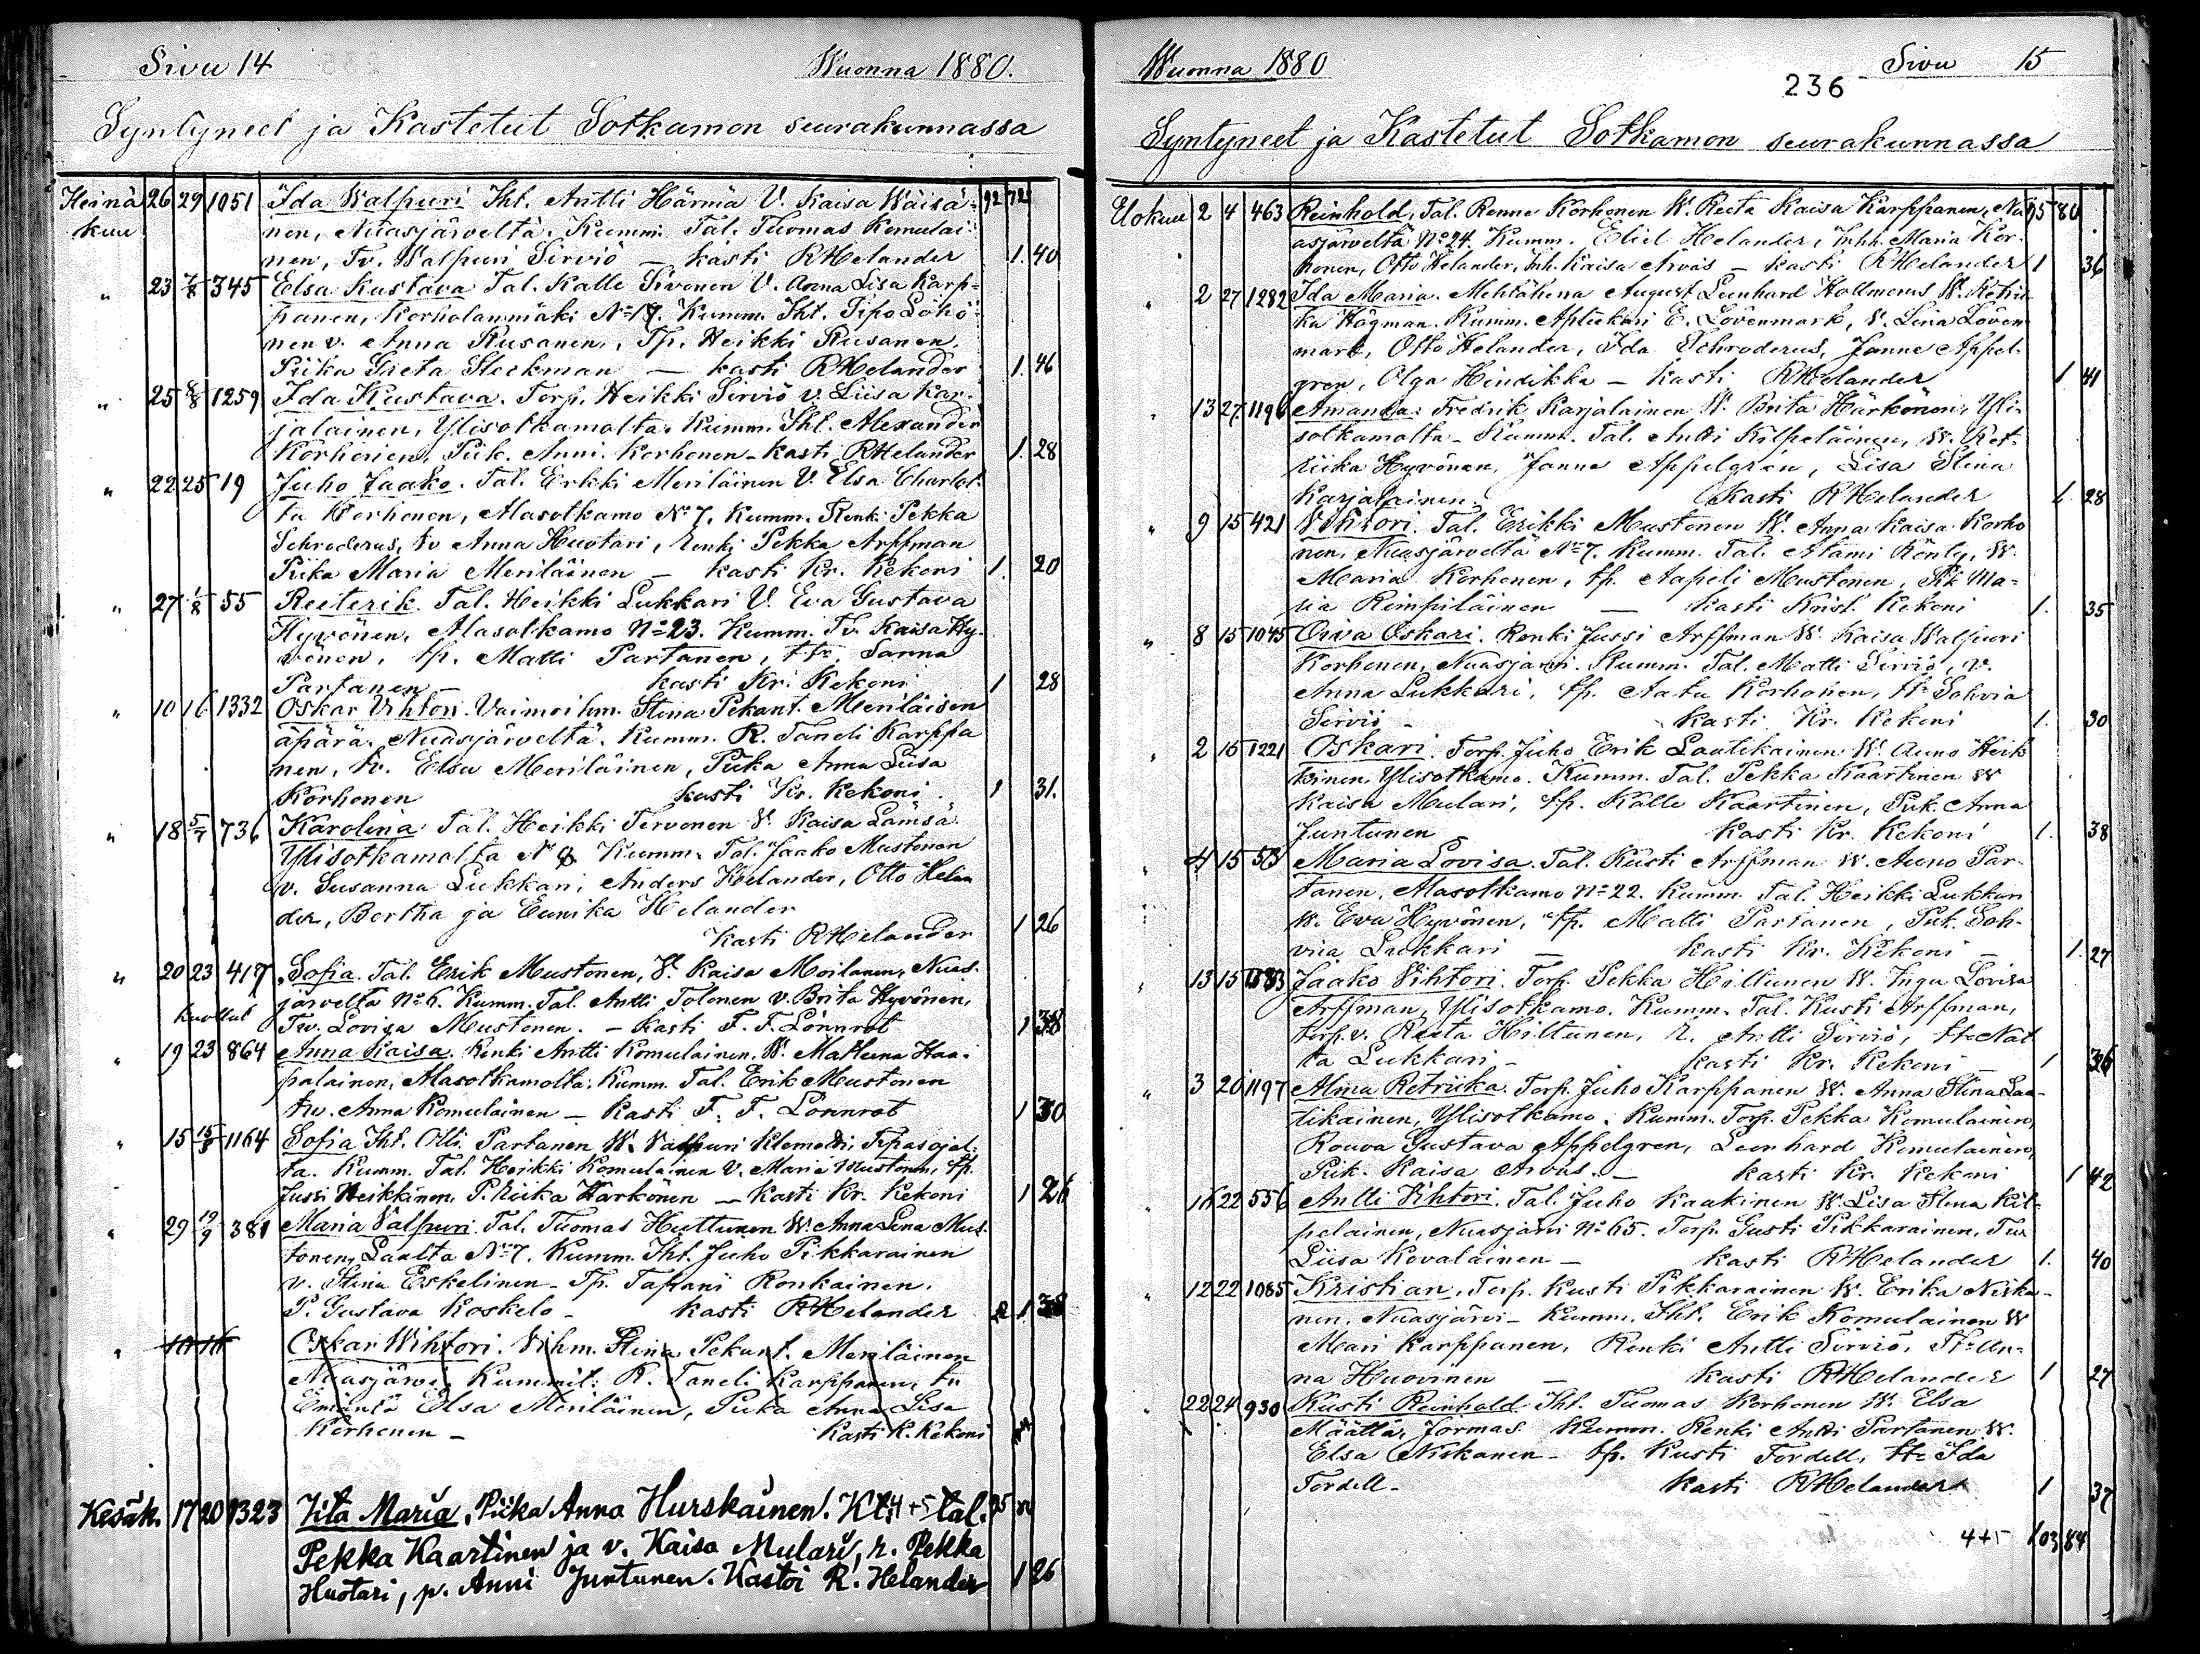 Sivu 14
Wuonna 1880.
Syntyneet ja Kastetut Sotkamon seurakunnassa
Heinä 26 29 1051 Ida Walpuri Iht. Antti Härmä V. Kaisa Wäisä- 92 72
kuu nen, Nuasjärveltä. Kumm. Tal. Tuomas Komulai-
nen, Tv. Walpuri Sirviö — kasti RHelander 1. 40
" 23 7/8 345 Elsa Kustava Tal. Kalle Sivonen V. Anna Lisa Karp-
panen, Korholanmäki No 17. Kumm. Iht. Pipo Löhö-
nen v. Anna Rusanen, Tp. Heikki Rusanen,
Piika Greta Steckman — kasti RHelander 1. 46
" 25 8/8 1259 Ida Kustava. Torp. Heikki Sirviö v. Liisa Kar-
jalainen, Ylisotkamolta. Kumm. Iht. Alexander
Korhonen, Piik. Anni Korhonen - kasti RHelander 1. 28
" 22 25 19 Juho Jaako. Tal. Erkki Meriläinen V. Elsa Charlot-
ta Korhonen, Alasotkamo No 7. Kumm. Renki Pekka
Schroderus, tv Anna Huotari, renki Pekka Arffman
Piika Maria Meriläinen — kasti Kr. Kekoni 1. 20
" 27 1/8 55 Reeterik. Tal. Heikki Lukkari V. Eva Gustava
Hyvönen, Alasotkamo No 23. Kumm. Tv. Kaisa Hy-
vönen, tp. Matti Partanen, ttr. Sanna
Partanen kasti Kr. Kekoni 1 28
" 10 16 1332 Oskar Vihtori. Vaimoihm. Stina Pekant. Meriläisen
äpärä. Nuasjärveltä. Kumm. R. Taneli Karppa
nen, tv. Elsa Meriläinen, Piika Anna Liisa
Korhonen kasti Kr. Kekoni. 1 31.
" 18 5/7 736 Karolina Tal. Heikki Tervonen V. Kaisa Lämsä
Ylisotkamolta No 8 Kumm. Tal. Jaako Mustonen
v. Susanna Lukkari, Anders Helander, Otto Helan
der, Bertha ja Eunika Helander
kasti RHelander 1 26
" 20 23 417 Sofia. Tal. Erik Mustonen, V. Kaisa Moilanen, Nuas-
järveltä No 6. Kumm. Tal. Antti Tolonen v. Brita Hyvönen,
kuollut Tv. Lovisa Mustonen. — kasti F. F. Lönnrot 1 38
" 19 23 864 Anna Kaisa. Renki Antti Komulainen, W. Matleena Haa-
palainen, Alasotkamolta. Kumm. Tal. Erik Mustonen
tv. Anna Komulainen — kasti F. F. Lönnrot 1 30
" 15 15/8 1164 Sofia Iht. Olli Partanen W. Valpuri Klemetti, Tipasojal-
ta. Kumm. Tal. Heikki Komulainen V. Maria Mustonen, tp.
Jussi Heikkinen P. Riika Härkönen — kasti Kr. Kekoni 1 26
" 29 19/9 381 Maria Valpuri. Tal. Tuomas Huttunen W. Anna Lena Mus-
tonen, Laalta No 7. Kumm. Iht. Juho Pikkarainen
v. Stina Eskelinen - Tp. Tapani Ronkainen.
P. Gustava Koskelo - kasti RHelander 1 38
" 10 16 Oskar Wihtori. Vihm. Stina Pekant. Meriläinen
Nuasjärvi. Kummit: R. Taneli Karppanen, tn
Emäntä Elsa Meriläinen, Piika Anna Lisa
Korhonen - kasti K. Kekoni
Kesäk. 17 20 1323 Iita Maria. Piika Anna Hurskainen. Kt. 4+5 tal.
Pekka Kaartinen ja v. Kaisa Mulari, r. Pekka
Huotari, p. Anni Juntunen. Kastoi R. Helander 1 26
Wuonna 1880
Sivu 15
236
Syntyneet ja Kastetut Sotkamon seurakunnassa
Elokuu 2 4 463 Reinhold, Tal. Renne Korhonen W. Reeta Kaisa Karppanen, Nu 95 80
asjärveltä No 24. Kumm. Eliel Helander, Inhh. Maria Kor-
honen, Otto Helander, Inh. Kaisa Arvas — kasti RHelander 1 36
" 2 27 1282 Ida Maria. Mehtähena August Leenhard Hollmerus W. Retrii
ka Högman. Kumm. Aptiekari E. Lövenmark, V. Lina Löven
mark, Otto Helander, Ida Schroderus, Janne Appel-
gren, Olga Hindikka — kasti RHelander 1 41
" 13 27 1196 Amanda. Fredrik Karjalainen W. Brita Härkönen, Yli-
sotkamolta - Kumm. Tal. Antti Kilpeläinen, W. Ret-
riika Hyvönen, Janne Appelgrén, Lisa Stina
Karjalainen. kasti RHelander 1 28
" 9 15 421 Vihtori. Tal. Erikki Mustonen W. Anna Kaisa Korho
nen, Nuasjärveltä No 7. Kumm. Tal. Atami Rönty, W.
Maria Korhonen, tp. Aapeli Mustonen, Pk Ma-
ria Reinpiläinen — kasti Krist. Kekoni 1. 35
" 8 15 1045 Oiva Oskari. Renki Jussi Arffman W. Kaisa Walpuri
Korhonen, Nuasjärvi. Kumm. Tal. Matti Sirviö, v.
Anna Lukkari, tp. Aatu Korhonen, ttr Sohvia
Sirviö - kasti Kr. Kekoni 1. 30
" 2 15 1221 Oskari. Torp. Juho Erik Laatikainen W. Auno Heik
kinen, Ylisotkamo. Kumm. Tal. Pekka Kaartinen W
Kaisa Mulari, tp. Kalle Kaartinen, Piik. Anna
Juntunen kasti Kr. Kekoni 1. 38
" 4 15 53 Maria Lovisa. Tal. Kusti Arffman W. Auno Par-
tanen, Alasotkamo No 22. Kumm. Tal. Heikki Lukkari
W. Eva Hyvönen, tp. Matti Partanen, Piik. Soh-
viia Lukkari — kasti Kr. Kekoni - 1. 27
" 13 15 Jaako Vihtori. Torp. Pekka Hiltunen W. Inga Lovisa
Arffman, Ylisotkamo. Kumm. Tal. Kusti Arffman,
torp. v. Reeta Hiltunen, r. Antti Sirviö, ttr Nat
ta Lukkari - kasti Kr. Kekoni 1 36
" 3 20 1197 Alma Retriika. Torp. Juho Karppanen W. Anna Stina Laa-
tikainen, Ylisotkamo. Kumm. Torp. Pekka Komulainen,
Rouva Gustava Appelgren, Leonhard Komulainen,
Piik. Kaisa Arvas. — kasti Kr. Kekoni 1 42
" 16 22 556 Antti Vihtori. Tal. Juho Kaakinen W. Lisa Stina Kil-
pelainen, Nuasjärvi No 65. Torp. Gusti Pikkarainen, Tw
Liisa Kovalainen — kasti RHelander 1. 40
" 12 22 1085 Kristian, Torp. Kusti Pikkarainen W. Erika Niska-
nen, Nuasjärvi - Kumm. Iht. Erik Komulainen W
Mari Karppanen, Renki Antti Sirviö, Ttr An-
na Huovinen — kasti RHelander 1 27
" 22 24 930 Kusti Reinhold Iht. Tuomas Korhonen W. Elsa
Määttä, Jormas. Kumm. Renki Antti Partanen W.
Elsa Niskanen - tp. Kusti Tordell, ttr Ida
Tordell - kasti RHelander 1 37
4+5 103 84